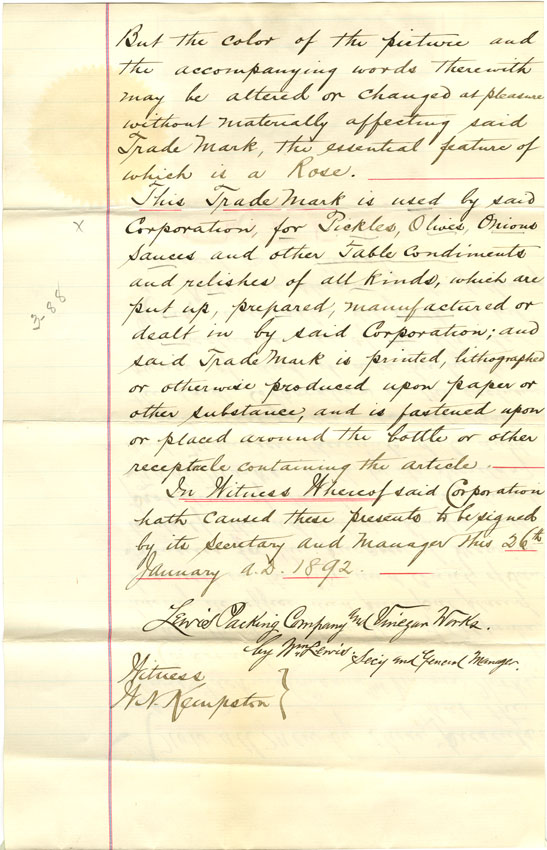 But the color of the picture and
the accompanying words therewith
may be altered or changed at pleasure
without materially affecting said
Trade Mark, the essential feature of
which is a Rose.
This Trade Mark is used by said
X
Corporation, for Pickles, Olives, Onions
Sauces and other Table Condiments
and relishes of all kinds, which are
3-88
put up, prepared, manufactured or
dealt in by said Corporation; and
said Trade Mark is printed, lithographed
or otherwise produced upon paper or
other substance, and is fastened upon
or placed around the bottle or other
receptacle containing the article.
In Witness Whereof said Corporation
hath caused these presents to be signed
by its Secretary and Manager this 26th
January A.D. 1892.
Lewis Packing Company and Vinegar Works.
by Wm Lewis. Secy and General Manager.
Witness
H. N. Kempston }